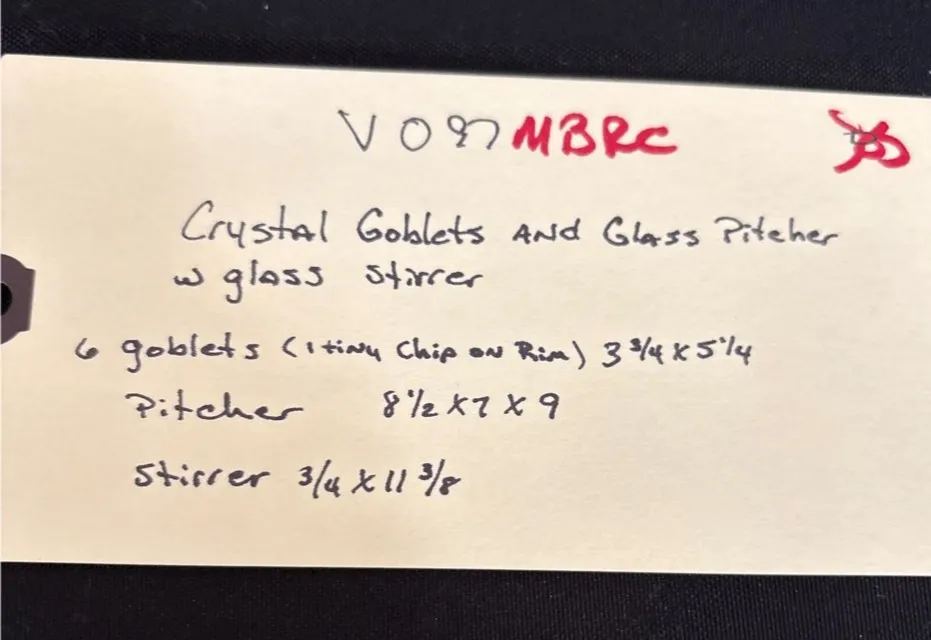 V 097 MBRC
Crystal Goblets AND Glass Pitcher
w glass stirrer
6 goblets (1 tiny Chip on Rim) 3 3/4 x 5 1/4
Pitcher 8 1/2 x 7 x 9
Stirrer 3/4 x 11 3/8